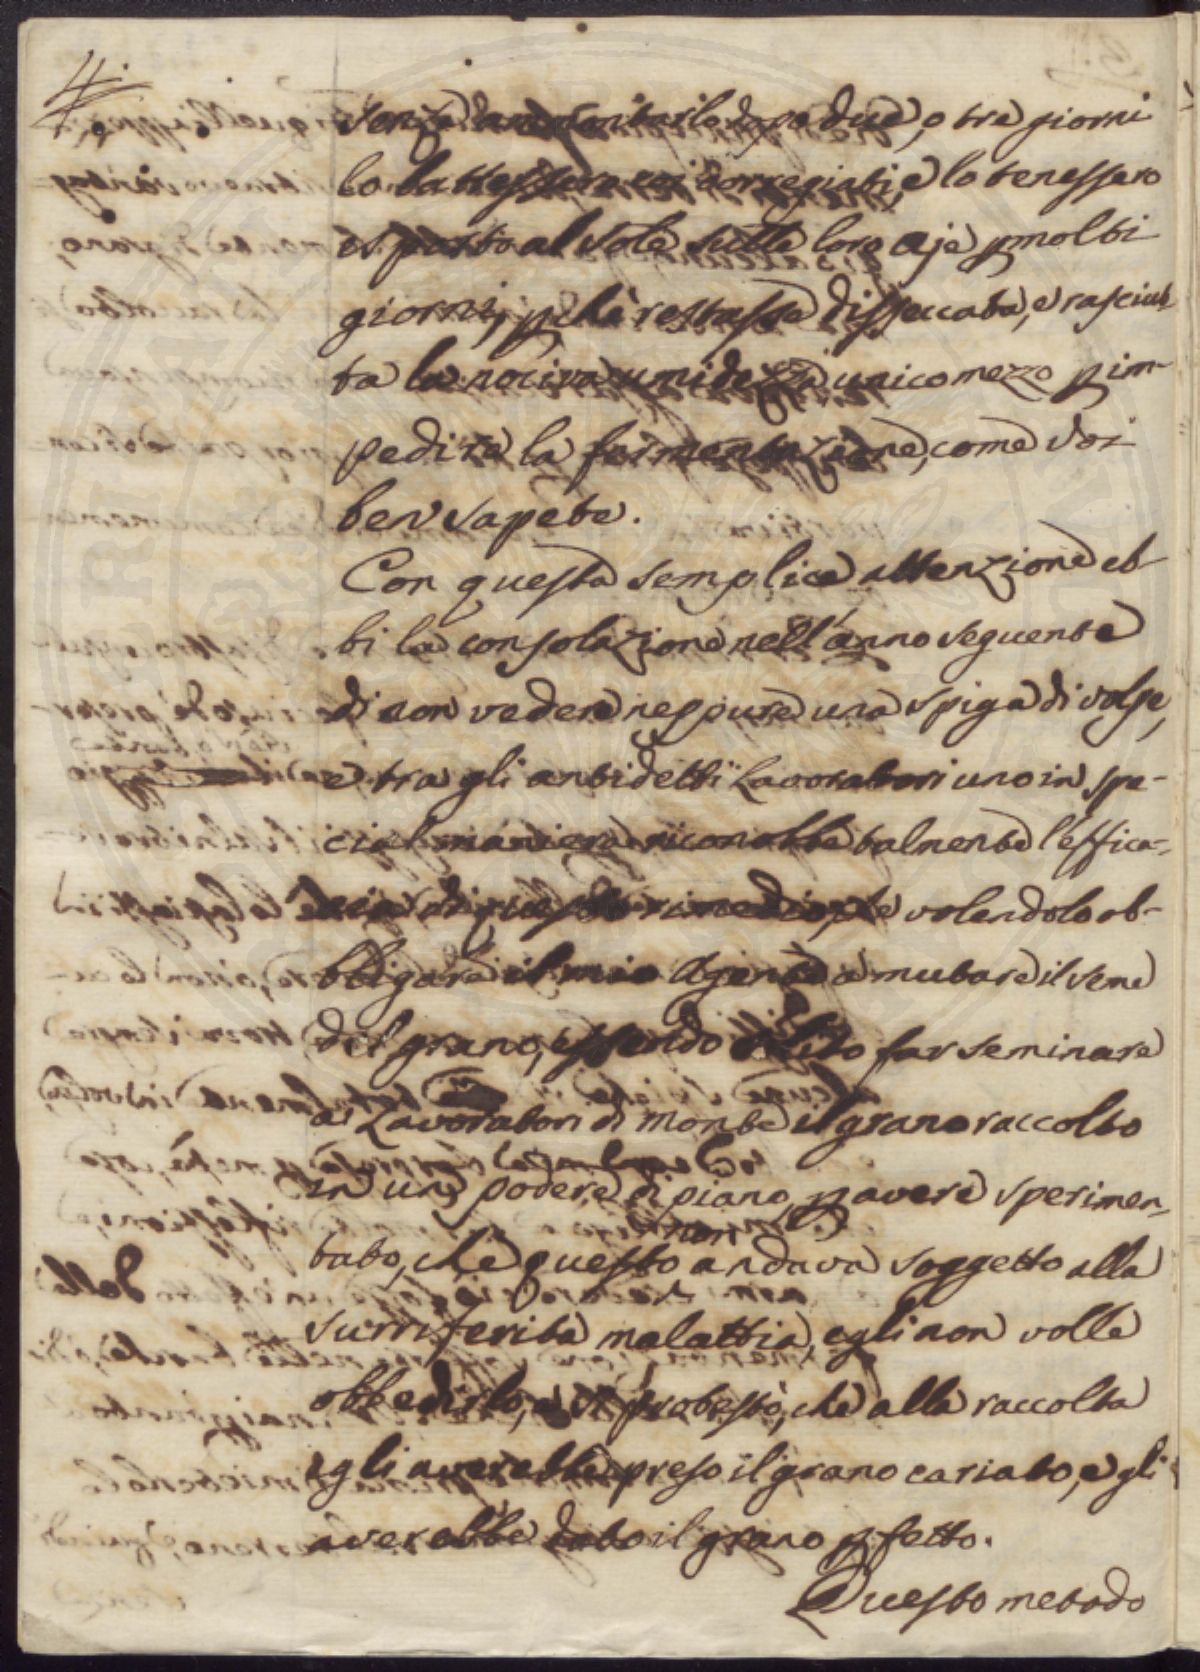 4.
senza ammontarlo dopo due, o tre giorni
lo battessero coi correggiati, e lo tenessero
esposto al sole sulle loro aje p molti
giorni, pchè restasse disseccata, e rasciut-
ta la nociva umidezza, unico mezzo p im-
pedire la fermentazione, come voi
ben sapete.
Con questa semplice attenzione eb-
bi la consolazione nell'anno seguente
di non vedere neppure una spiga di volpe,
e tra gli antidetti Lavoratori uno in spe-
cial maniera riconobbe talmente l'effica-
cia di questo rimedio, che volendolo ob-
bligare il mio Agente a mutare il seme
del grano, essendo solito far seminare
a' Lavoratori di monte il grano raccolto
in un podere di piano, p avere sperimen-
tato, che questo non andava soggetto alla
surriferita malattia, egli non volle
obbedirlo, e si protestò, che alla raccolta
egli averebbe preso il grano cariato, e gli
averebbe dato il grano pfetto.
Questo metodo